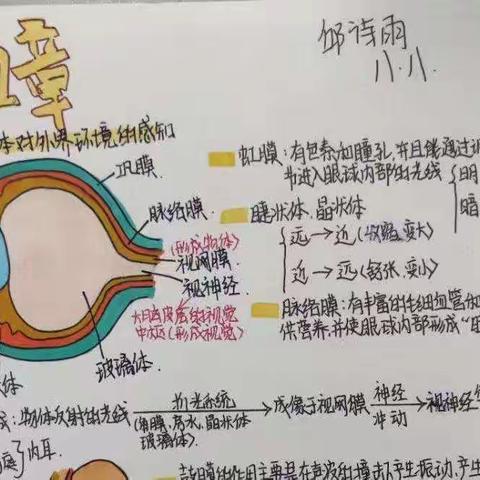 章
邱诗雨
八.八.
体对外界环境的感知
巩膜
虹膜:有色素和瞳孔,并且能通过调
节进入眼球内部的光线
脉络膜
睫状体、晶状体
(形成物体)
视网膜
远→近(收缩,变大)
视神经
近→远(舒张,变小)
大脑皮层的视觉
中枢(形成视觉)
脉络膜:有丰富的毛细血管和
供营养,并使眼球内部形成“暗
玻璃体
体
:物体反射的光线 折光系统 (角膜,房水,晶状体 玻璃体) →成像于视网膜 神经冲动→视神经
内耳
鼓膜的作用主要是在声波的撞击下产生振动,产生